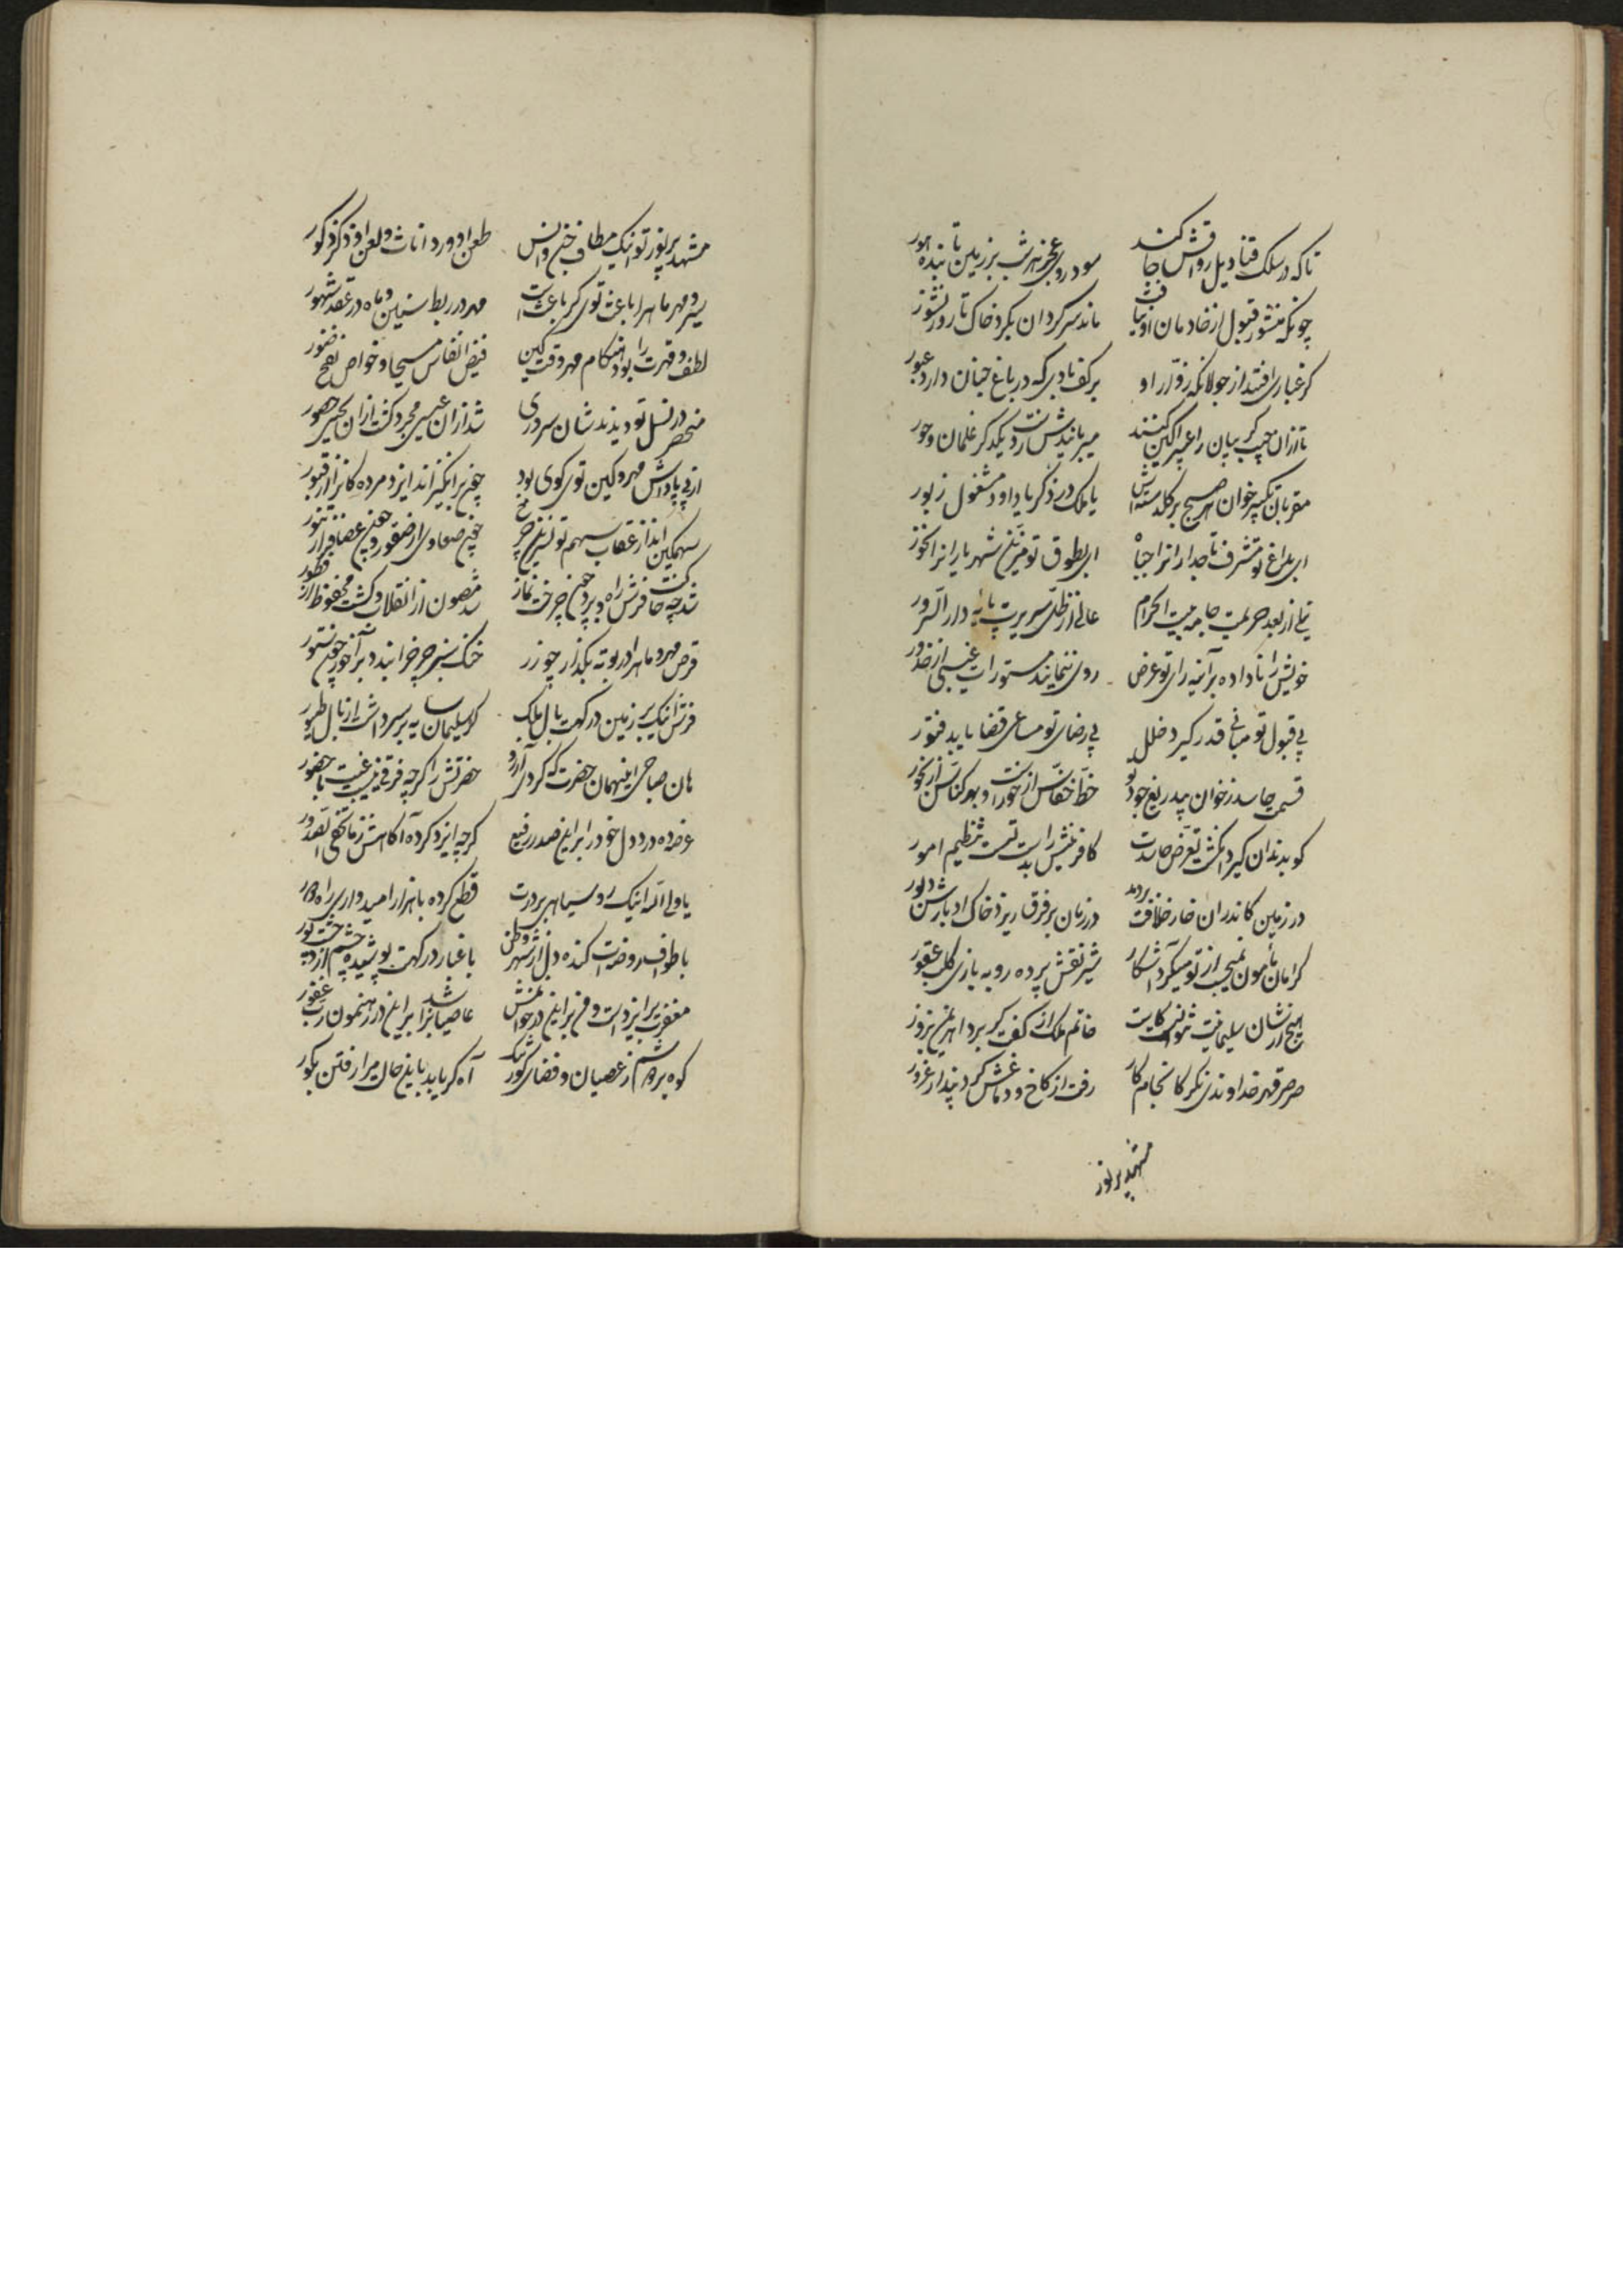 تا که در سلک قنادیل رواقش جا کند سود روی عجز هر شب بر زمین تابنده هور
چونکه منشور قبول از خادمان او نیافت ماند سرگردان بگرد خاک تا روز نشور
گر غباری افتد از جولانگه زوار او بر کف بادی که در باغ جنان دارد عبور
تا از آن جیب و گریبان را عبیرآگین کنند میربایندش ز دست یکدگر غلمان و حور
مقریان تکبیر خوان هر صبح بر گلدسته‌اش یا ملک در ذکر یا داود مشغول زبور
ای بداغ تو مشرف تاجداران را جباه ای بطوق تو مزین شهریاران را نحور
ثانی از بعد حریمت جا به بیت الحرام عالی از ظل سریرت پایه دار السرور
خویش را ناداده بر آئینه رای تو عرض روی ننمایند مستورات غیبی از خدور
بی قبول تو مبانی قدر گیرد خلل بی رضای تو مساعی قضا یابد فتور
قسمت حاسد ز خوان بیدریغ جود تو حظ خفاش از خور و بهر کناس از بخور
کو بدندان گیرد انگشت تعرض حاسدت کافرینش را بدست تست تنظیم امور
در زمین کاندران خار خلافت بردمد در زمان بر فرق ریزد خاک ادبارش دبور
گر امان مأمون نمیجست از تو میکرد آشکار شیر نقش پرده روبه بازی کلب عقور
هیچ از شان سلیمانیت نتوانست کاست خاتم ملک ار کفت گر برد اهریمن بزور
صرصر قهر خداوندی نگر کانجام کار رفت از کاخ دماغش گرد پندار غرور
مشهد پر نور
مشهد پر نور تو اینک مطاف جن و انس طعن او ورد اناث و لعن او ذکر ذکور
سیر مهر و ماه را باعث توی گر باعثست مهر در ربط سنین و ماه در عقد شهور
لطف و قهرت را بود هنگام مهر و وقت کین فیض انفاس مسیحا و خواص نفخ صور
منحصر در نسل تو دیدند شان سروری شد از آن عیسی مجرد گشت از آن یحیی حصور
از پی پاداش مهر و کین توی گوی بود چون برانگیزاند ایزد مردگان را از قبور
سهمگین انداز عقاب سهم تو نسرین چرخ چون صعاوی از صقور و چون عصافیر از نسور
شد چه خاک فرش راه و پرده چرخت نماز شد مصون از انقلاب و گشت محفوظ از فطور
قرص مهر و ماه را در بوته بگدازد چو زر خنگ سبز چرخ را بندد بر آخور چون ستور
فرش اینک بر زمین درگهت بال ملک گر سلیمان سایه بر سر داشت از بال طیور
هان صباحی اینهمان حضرت که کردی آرزو حضرتش را گرچه فرقی نیست غیبت با حضور
عرضه ده درد دل خود را برین صدر رفیع گرچه ایزد کرده آگاهش ز ما تخفی الصدور
یا ولی الله اینک روسیاهی بر درت قطع کرده با هزار امیدواری راه دور
با طواف روضه‌ات کنده دل از شهر و وطن با غبار درگهت پوشیده چشم از دخت و پور
مغفرت بر ایزد است و من برین در خواهمش عاصیان را شد برین در رهنمون رب غفور
کوه بر دوشم ز عصیان و فضای گور تنگ آه گر باید باین حال مرا رفتن بگور